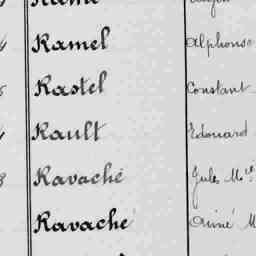 Ramel Alphonse
Rastel Constant
Rault Edouard
Ravaché Jules M.
Ravaché Aimé M